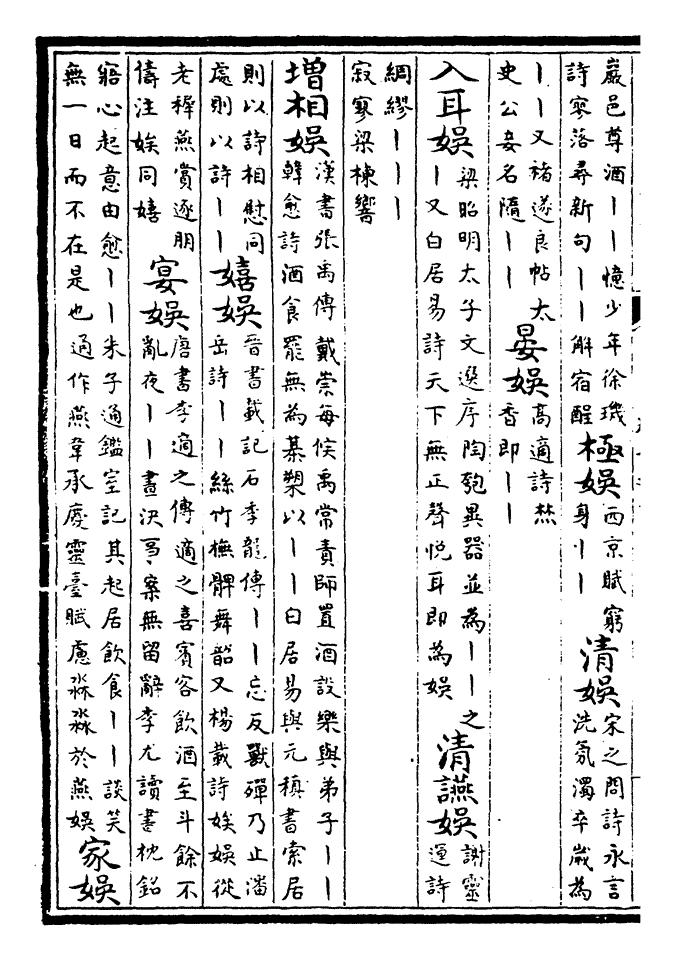 巖邑尊酒丨丨憶少年徐璣詩寥落尋新句丨丨解宿酲極娛西京賦窮身丨丨清娛宋之問詩永言洗氛濁卒歲為
丨丨又褚遂良帖太史公妾名隨丨丨晏娛高適詩焚香即丨丨
入耳娛梁昭明太子文選序陶匏異器並為丨丨之丨又白居易詩天下無正聲悅耳即為娛清讌娛謝靈運詩
綢繆丨丨丨寂寥梁棟響
增相娛漢書張禹傳戴崇每候禹常責師置酒設樂與弟子丨丨韓愈詩酒食罷無為棊槊以丨丨白居易與元稹書索居
則以詩相慰同處則以詩丨丨嬉娛晉書載記石季龍傳丨丨忘反獸殫乃止潘岳詩丨丨絲竹撫髀舞韶又楊載詩娭娛從
老穉燕賞逐朋儔注娭同嬉宴娛唐書李適之傳適之喜賓客飲酒至斗餘不亂夜丨丨晝決事案無留辭李尤讀書枕銘
寤心起意由愈丨丨朱子通鑑室記其起居飲食丨丨談笑無一日而不在是也通作燕韋承慶靈臺賦慮淼淼於燕娛家娛